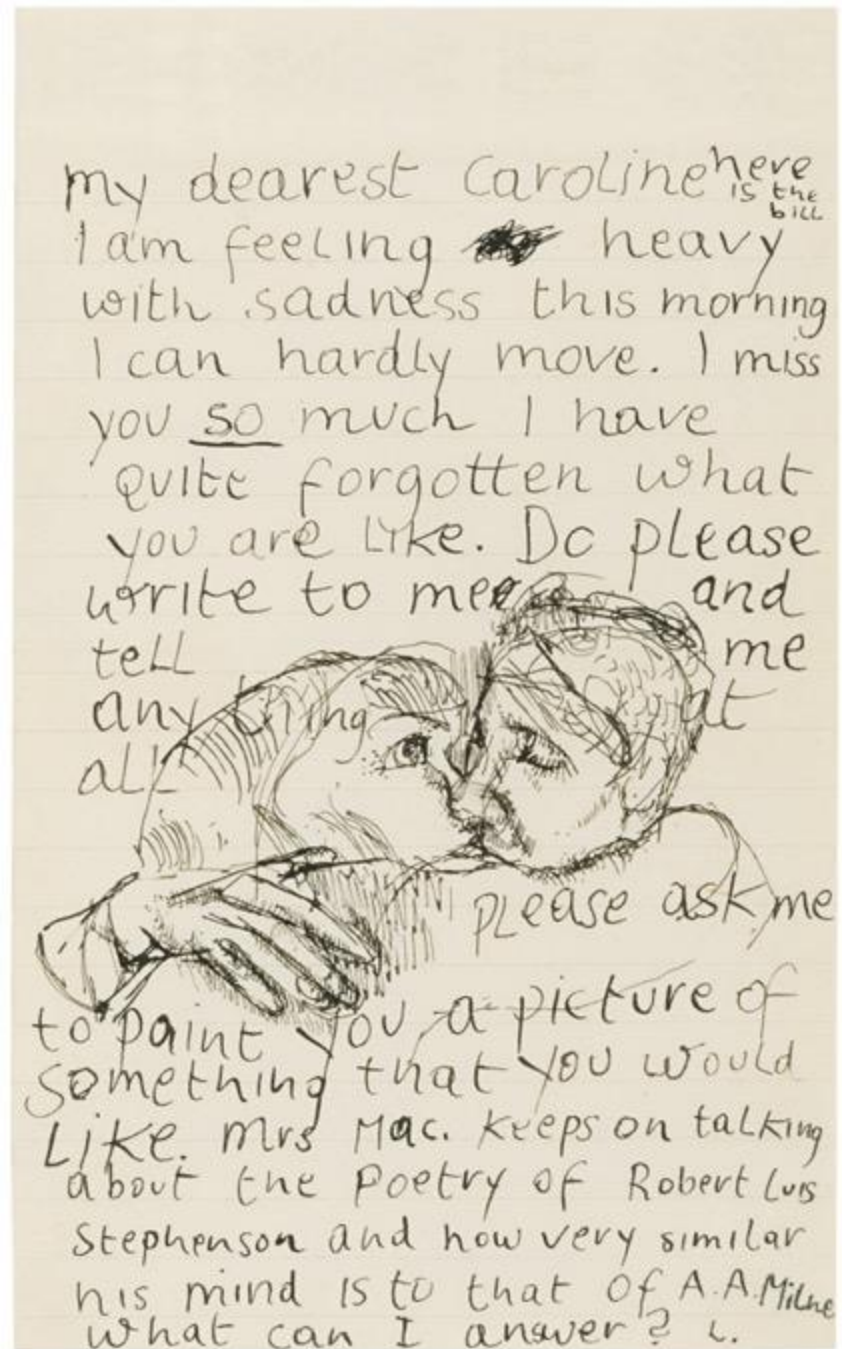 my dearest Caroline here
is the
bill
I am feeling heavy
with sadness this morning
I can hardly move. I miss
you so much I have
quite forgotten what
you are like. Do please
write to me and
tell me
any thing at
all
please ask me
to paint you a picture of
something that you would
like. Mrs Mac. keeps on talking
about the Poetry of Robert Luis
Stephenson and how very similar
his mind is to that of A.A. Milne
What can I answer? L.